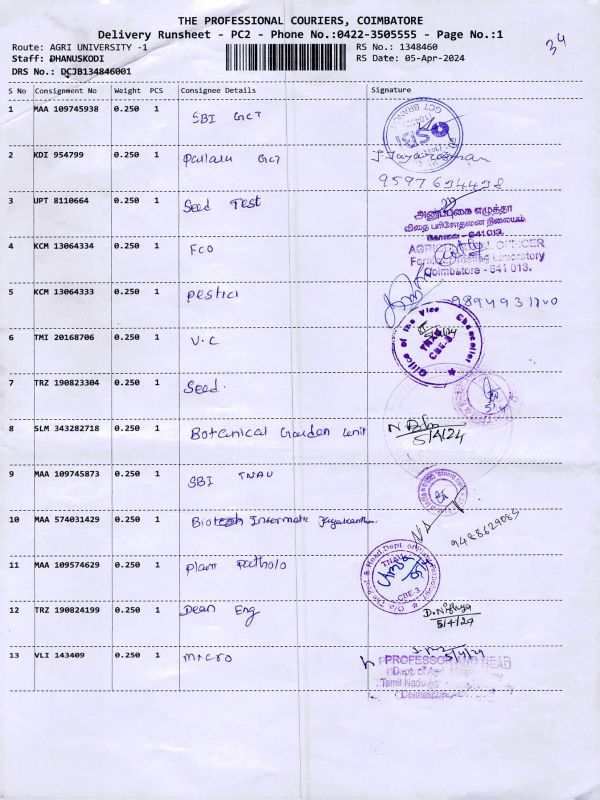 THE PROFESSIONAL COURIERS, COIMBATORE
Delivery Runsheet - PC2 - Phone No.:0422-3505555 - Page No.:1
Route: AGRI UNIVERSITY -1
RS No.: 1348460
34
Staff: DHANUSKODI
RS Date: 05-Apr-2024
DRS No.: DCJB134846001
S No Consignment No Weight PCS Consignee Details Signature
1 MAA 109745938 0.250 1 SBI GCT
GCT BRANCH
SBI
2 KDI 954799 0.250 1 GCT
3 UPT 8110664 0.250 1 Seed Test
அனுப்புகை எழுத்தர்
விதை பரிசோதனை நிலையம்
கோவை - 641 013.
4 KCM 13064334 0.250 1 FCO
OFFICER
Laboratory
Coimbatore - 641 013.
5 KCM 13064333 0.250 1 pestici
6 TMI 20168706 0.250 1 V.C
Office of the Vice Chancellor
TNAU
CBE-3
7 TRZ 190823304 0.250 1 Seed.
5/4
8 SLM 343282718 0.250 1 Botanical Garden Unit
5/4/24
9 MAA 109745873 0.250 1 SBI TNAU
10 MAA 574031429 0.250 1 Jayakanthan
9488629085
11 MAA 109574629 0.250 1 plant Patholo
TNAU
CBE-3
12 TRZ 190824199 0.250 1 Dean Eng
D.Nithya
5/4/24
13 VLI 143409 0.250 1 micro
5/4/24
PROFESSOR AND HEAD